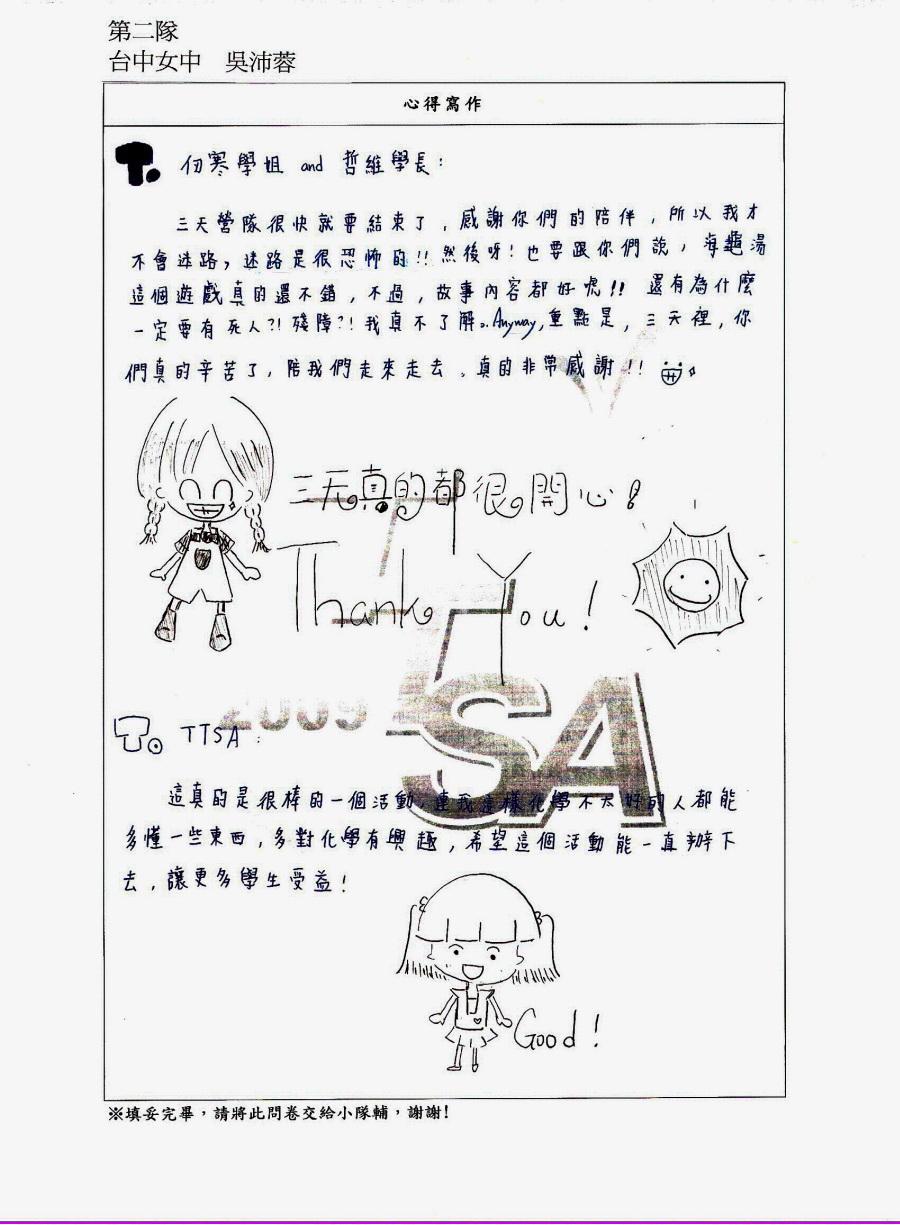 第二隊
台中女中 吳沛蓉
心得寫作
To. 仞寒學姐 and 哲維學長:
三天營隊很快就要結束了,感謝你們的陪伴,所以我才
不會迷路,迷路是很恐怖的!!然後呀!也要跟你們說,海龜湯
這個遊戲真的還不錯,不過,故事內容都好唬!! 還有為什麼
一定要有死人?!殘障?!我真不了解。Anyway,重點是,三天裡,你
們真的辛苦了,陪我們走來走去。真的非常感謝!!
三天真的都很開心!
Thank You!
2009
SA
To. TTSA:
這真的是很棒的一個活動,連我這樣化學不太好的人都能
多懂一些東西,多對化學有興趣,希望這個活動能一直辦下
去,讓更多學生受益!
Good!
※填妥完畢,請將此問卷交給小隊輔,謝謝!